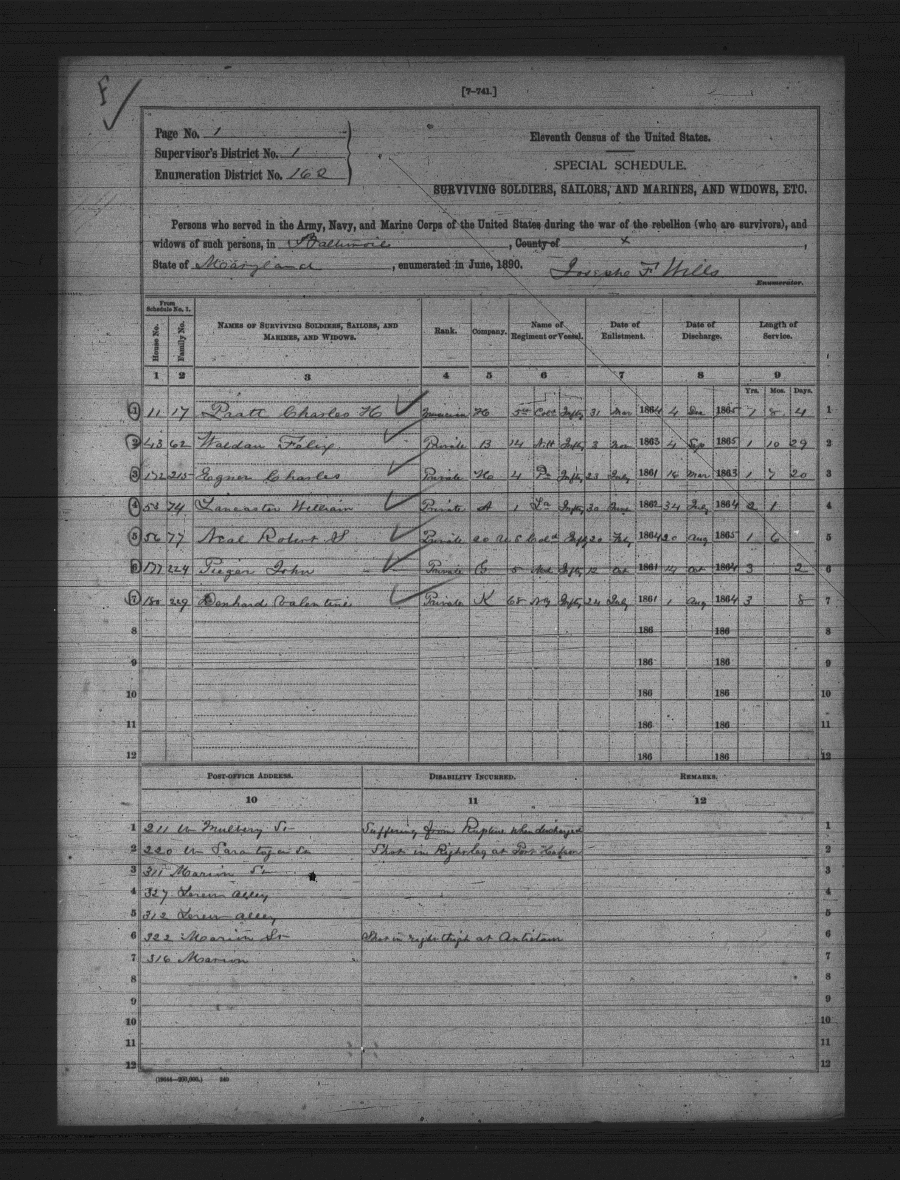 [7-741.]
Page No. 1
Supervisor's District No. 1
Enumeration District No. 162
Eleventh Census of the United States.
SPECIAL SCHEDULE.
SURVIVING SOLDIERS, SAILORS, AND MARINES, AND WIDOWS, ETC.
Persons who served in the Army, Navy, and Marine Corps of the United States during the war of the rebellion (who are survivors), and
widows of such persons, in Baltimore, County of x,
State of Maryland, enumerated in June, 1890. Joseph F Wills
Enumerator.
From Schedule No. 1.
House No. Family No. NAMES OF SURVIVING SOLDIERS, SAILORS, AND MARINES, AND WIDOWS. Rank. Company. Name of Regiment or Vessel. Date of Enlistment. Date of Discharge. Length of Service.
1 2 3 4 5 6 7 8 9
Yrs. Mos. Days.
1 11 17 Pratt Charles H Musician H 5 Infty 31 Mar 1864 4 Dec 1865 1 8 4 1
2 43 62 Waldan Felix Private B 14 Infty 3 Nov 1863 4 Sep 1865 1 10 29 2
3 172 215 Egner Charles Private H 4 Pa Infty 23 July 1861 14 Mar 1863 1 7 20 3
4 53 74 Lancaster William Private A 1 Infty 30 June 1862 34 July 1864 2 1 4
5 56 77 Neal Robert S Private 20 U S Cold Infty 20 Feby 1864 20 Aug 1865 1 6 5
6 177 224 Pieger John Private C 5 Md Infty 12 Oct 1861 14 Oct 1864 3 2 6
7 180 229 Denhard Valentine Private K 68 NY Infty 24 July 1861 1 Aug 1864 3 8 7
8 186 186 8
9 186 186 9
10 186 186 10
11 186 186 11
12 186 186 12
POST-OFFICE ADDRESS. DISABILITY INCURRED. REMARKS.
10 11 12
1 211 W Mulbery St Suffering from Rupture when discharged 1
2 220 W Saratoga St Shot in Right leg at Port Hudson 2
3 311 Marion St 3
4 327 alley 4
5 312 alley 5
6 322 Marion St Shot in right thigh at Antietam 6
7 316 Marion 7
8 8
9 9
10 10
11 11
12 12